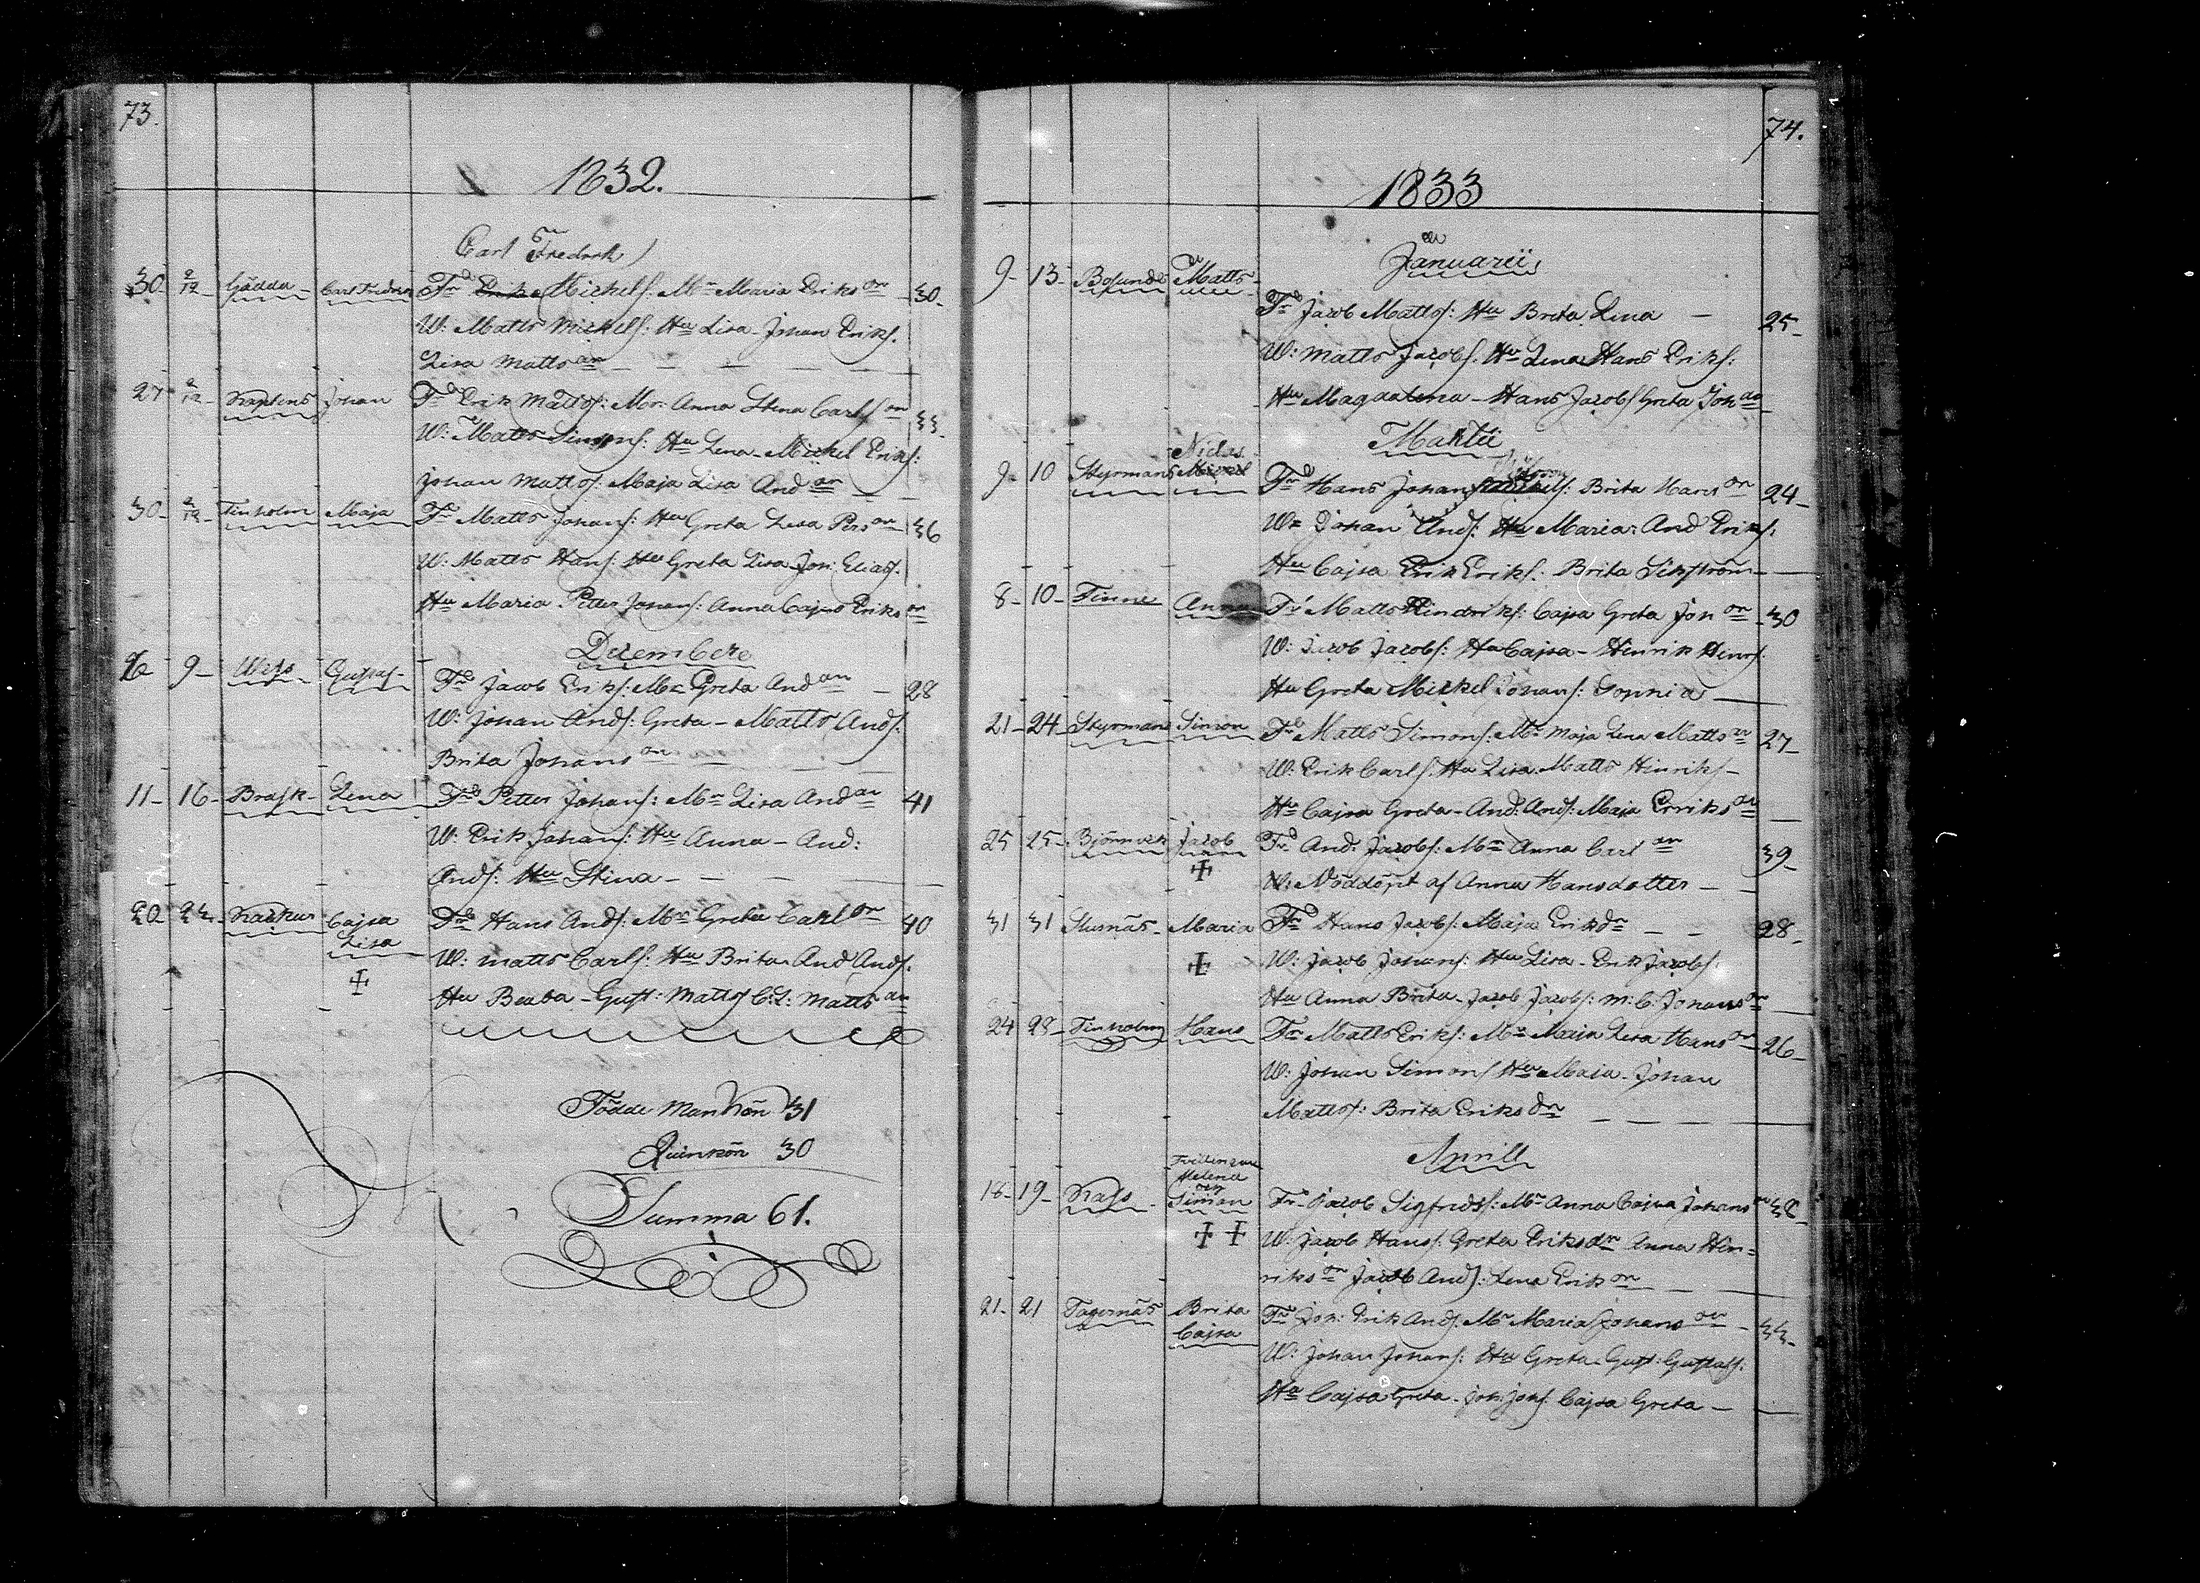 73.
1832.
Carl Fredrik
30 2/12 Gädda Carl Fredrik Fr Michelss: Mr Maria Eriks dr 30
W: Matts Mickelss: Hu Lisa Johan Eriks.
Lisa Matts dr
27 2/12 Kaptens Johan Fr Erik Mattss: Mr Anna Stina Carls dr 33
W: Matts Simonss: Hu Lena Mickel Eriks:
Johan Mattss. Maja Lisa And dr
30 2/12 Finholm Maja Fr Matts Johanss: Hu Greta Lisa Pers dr 36
W: Matts Hanss: Hu Greta Lisa Joh: Eliass.
Hu Maria Petter Johanss: Anna Cajsa Eriks dr
Decembere
6 9 Gustaf Fr Jacob Erikss: Mr Greta And dr 28
W: Johan Ands: Greta Matts Ands:
Brita Johans dr
11 16 Brask Lena Fr Petter Johanss: Mr Lisa And dr 41
W: Erik Johanss: Hu Anna And:
Ands: Hu Stina
20 23 Cajsa Fr Hans Ands: Mr Greta Carl dr 40
Lisa W: Matts Carlss: Hu Brita And Ands.
Hu Beata Gust: Mattss C: L: Matts dr
Födde Mankön 31
Quinkön 30
Summa 61.
74.
1833
Januarii
9 13 Bosund Matts
Fr Jacob Mattss: Hu Brita Lena 25
W: Matts Jacobss. Hu Lena Hans Erikss:
Hu Magdalena Hans Jacobss Greta Joh dr
Martii
Niclas
9 10 Styrmans Fr Hans Johan Brita Hans dr 24
W: Johan Ands: Hu Maria And Eriks:
Hu Cajsa Erik Erikss: Brita Sikström
8 10 Finne Anna Fr Matts Hindrikss: Cajsa Greta Joh dr 30
W: Jacob Jacobss: Hu Cajsa Hinrik Henrs.
Hu Greta Mickel Johanss: Sophia
21 24 Styrmans Simon Fr Matts Simonss: Mr Maja Lena Matts dr 27
W: Erik Carlss: Hu Lisa Matts Hinrikss
Hu Cajsa Greta And: Ands: Maja Eriks dr
25 25 Björnvik Jacob Fr And: Jacobss: Mr Anna Carl dr 39
W: Nöddöpt af Anna Hansdotter
31 31 Slusnäs Maria Fr Hans Jacobss: Maja Eriks dr 28
W: Jacob Johanss: Hu Lisa Erik Jacobss:
Hu Anna Brita Jacob Jacobss: M: C: Johans dr
24 28 Finholm Hans Fr Matts Erikss: Mr Maja Lisa Hans dr 26
W: Johan Simonss Hu Maja Johan
Mattss: Brita Eriks dr
Aprill
Tvillingar
Helena
och
18 19 Kass Simon Fr Jacob Sigfridss: Mr Anna Cajsa Johans dr 38
W: Jacob Hanss: Greta Eriks dr Anna Hin=
riks dr Jacob Ands: Lena Erik dr
21 21 Fagernäs Brita Fr Joh: Erik Ands: Mr Maria Johans dr 33
Cajsa W: Johan Johanss: Hu Greta Gust: Gustafs:
Hu Cajsa Greta Joh: Johs. Cajsa Greta